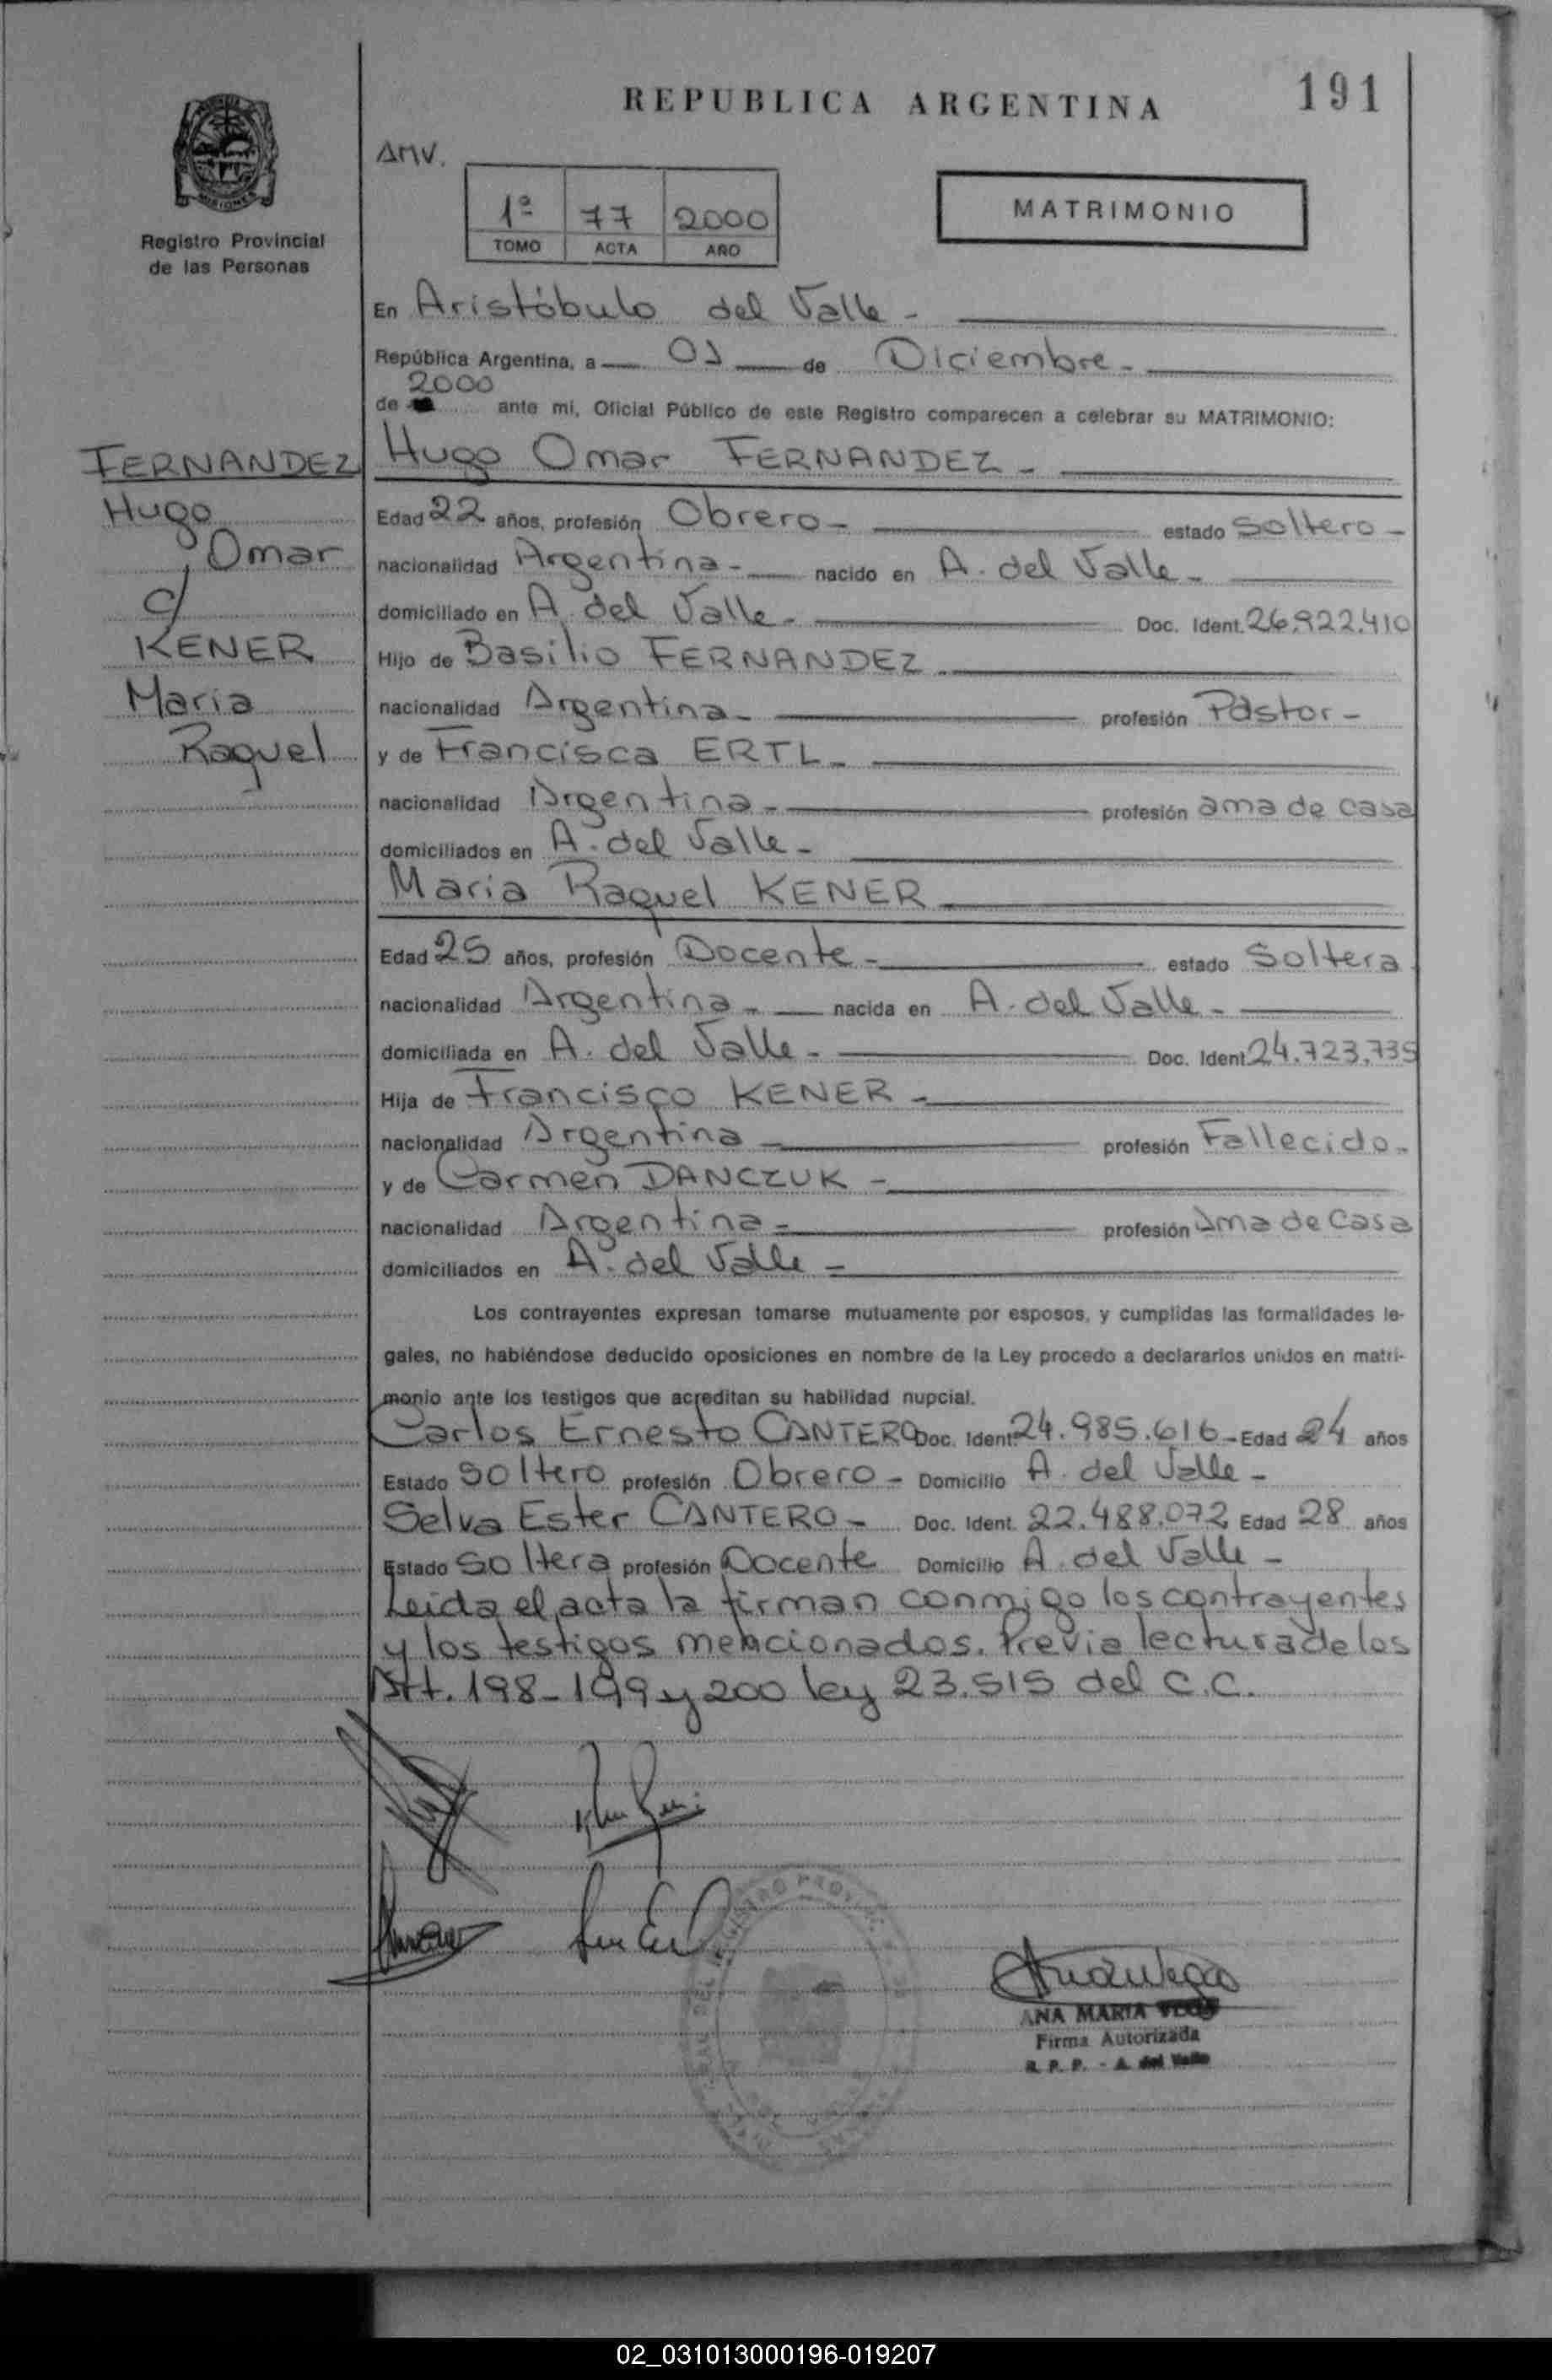 REPUBLICA ARGENTINA
191
MISIONES
Registro Provincial
de las Personas
AMV.
1º 77 2000
TOMO ACTA AÑO
MATRIMONIO
En Aristóbulo del Valle -
República Argentina, a 01 de Diciembre -
2000
de ante mi, Oficial Público de este Registro comparecen a celebrar su MATRIMONIO:
FERNANDEZ
Hugo
Omar
c/
KENER
Maria
Raquel
Hugo Omar FERNANDEZ -
Edad 22 años, profesión Obrero - estado Soltero -
nacionalidad Argentina - nacido en A. del Valle -
domiciliado en A. del Valle - Doc. Ident. 26.922.410
Hijo de Basilio FERNANDEZ
nacionalidad Argentina - profesión Pastor -
y de Francisca ERTL -
nacionalidad Argentina - profesión ama de casa
domiciliados en A. del Valle -
Maria Raquel KENER
Edad 25 años, profesión Docente - estado Soltera
nacionalidad Argentina - nacida en A. del Valle -
domiciliada en A. del Valle - Doc. Ident. 24.723.735
Hija de Francisco KENER -
nacionalidad Argentina profesión Fallecido -
y de Carmen DANCZUK -
nacionalidad Argentina - profesión Ama de Casa
domiciliados en A. del Valle -
Los contrayentes expresan tomarse mutuamente por esposos, y cumplidas las formalidades le-
gales, no habiéndose deducido oposiciones en nombre de la Ley procedo a declararlos unidos en matri-
monio ante los testigos que acreditan su habilidad nupcial.
Carlos Ernesto CANTERO Doc. Ident. 24.985.616 - Edad 24 años
Estado Soltero profesión Obrero - Domicilio A. del Valle -
Selva Ester CANTERO - Doc. Ident. 22.488.072 Edad 28 años
Estado Soltera profesión Docente Domicilio A. del Valle -
Leida el acta la firman conmigo los contrayentes
y los testigos mencionados. Previa lectura de los
Art. 198-199 y 200 ley 23.515 del C.C.
ANA MARIA
Firma Autorizada
R. P. P. - A. del Valle
02_031013000196-019207